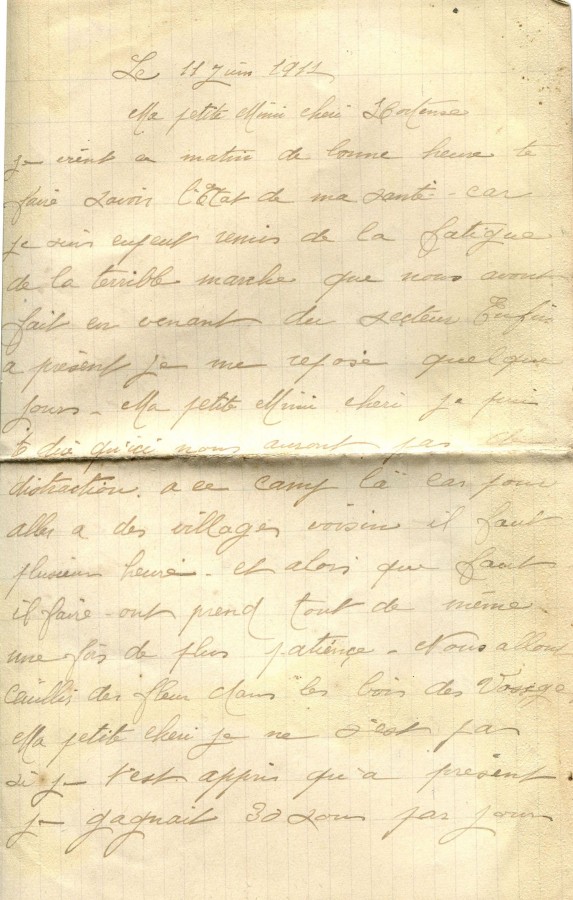 Le 11 Juin 1911
Ma petite Mimi cheri Hortense
je vient ce matin de bonne heure te
faire savoir l'Etat de ma santé - car
je suis enfent remis de la fatigue
de la terrible marche que nous avont
fait en venant du secteur Enfin
a présent je me repose quelque
jours - Ma petite Mimi cheri je puis
te dire qu'ici nous auront pas de
distraction. a ce camp là car pour
aller a des villages voisin il faut
plusieur heure - et alors que faut
il faire - ont prend tout de même
une fois de plus patience - Nous allons
ceuillir des fleur dans les bois des Vosges,
Ma petite cheri je ne s'est pas
si je t'est appris qu'a présent
je gagnait 30 sous par jours